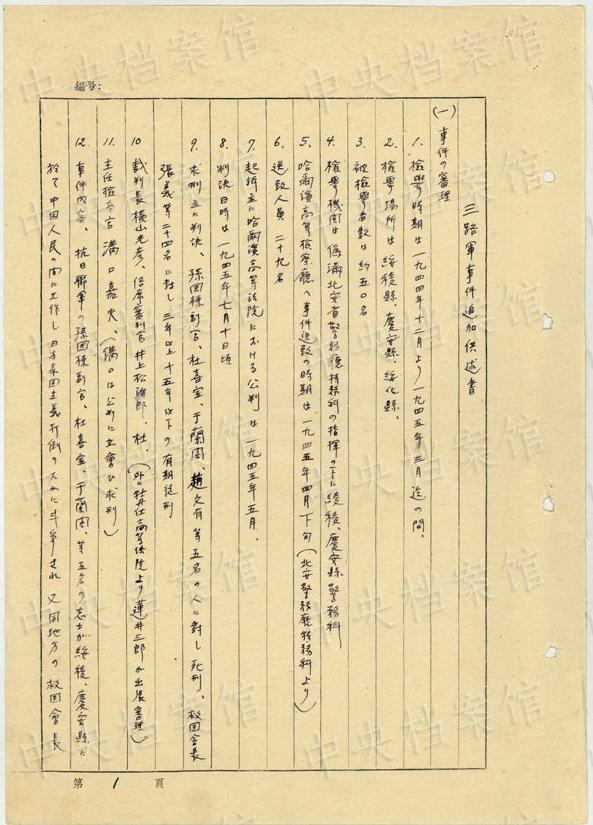 編号:
三路軍事件追加供述書
(一) 事件の審理
1. 檢擧時期は一九四四年十二月より一九四五年三月迄の間、
2. 檢擧場所は綏稜縣、慶安縣、綏化縣、
3. 被檢擧者数は約五〇名
4. 檢擧機関は偽満北安省警務廳特務科の指揮の下に綏稜、慶安縣警務科
5. 哈爾濱高等檢察廳へ事件送致の時期は一九四五年四月下旬(北安警務廳特務科より)
6. 送致人員 二十九名
7. 起訴並に哈爾濱高等法院における公判は一九四五年五月、
8. 判決日時は一九四五年七月十日頃
9. 求刑並に判決、孫国棟副官、杜喜宝、于蘭閣、趙文有等五名の人に對し死刑、救国會長
張義等二十四名に對し三年以上十五年以下の有期徒刑
10 裁判長横山光彦、陪席審判官井上松治郎、杜、(外に牡丹江高等法院より蓮井三郎が出張審理)
11. 主任檢察官溝口嘉夫、(溝口は公判に立會ひ求刑)
12. 事件内容、抗日聯軍の孫国棟副官、杜喜宝、于蘭閣、等五名の志士が綏稜、慶安縣に
於て中国人民の間に工作し日本帝国主義打倒のために斗爭され 又同地方の救国會長
第 1 頁
中央档案馆